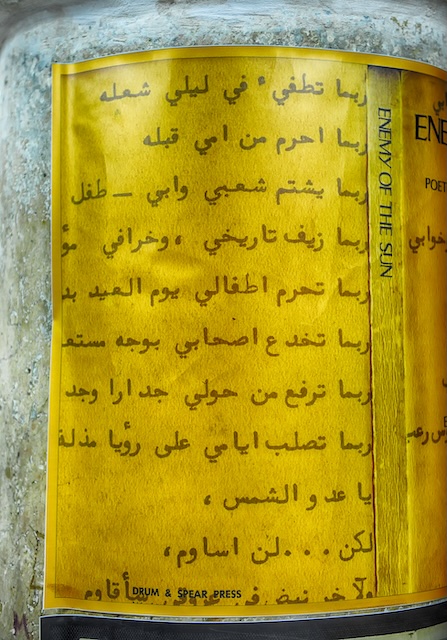 ربما تطفيء في ليلي شعله
ربما احرم من امي قبله
ربما يشتم شعبي وابي ــ طفل
ربما زيف تاريخي ، وخرافي مؤ
ربما تحرم اطفالي يوم العيد بد
ربما تخدع اصحابي بوجه مستعـ
ربما ترفع من حولي جدارا وجد
ربما تصلب ايامي على رؤيا مذلة
يا عدو الشمس ،
لكن ... لن اساوم ،
ولآخر نبض في عروقي سأقاوم
DRUM & SPEAR PRESS
ENEMY OF THE SUN
ENE
POET